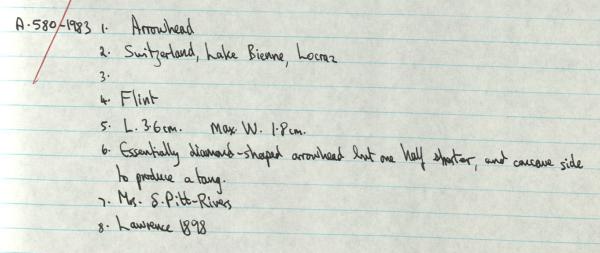 A.580-1983 1. Arrowhead
2. Switzerland, Lake Bienne, Locraz
3.
4. Flint
5. L. 3.6cm. Max. W. 1.8cm.
6. Essentially diamond-shaped arrowhead but one half shorter, and concave side
to produce a tang.
7. Mrs. S. Pitt-Rivers
8. Lawrence 1898